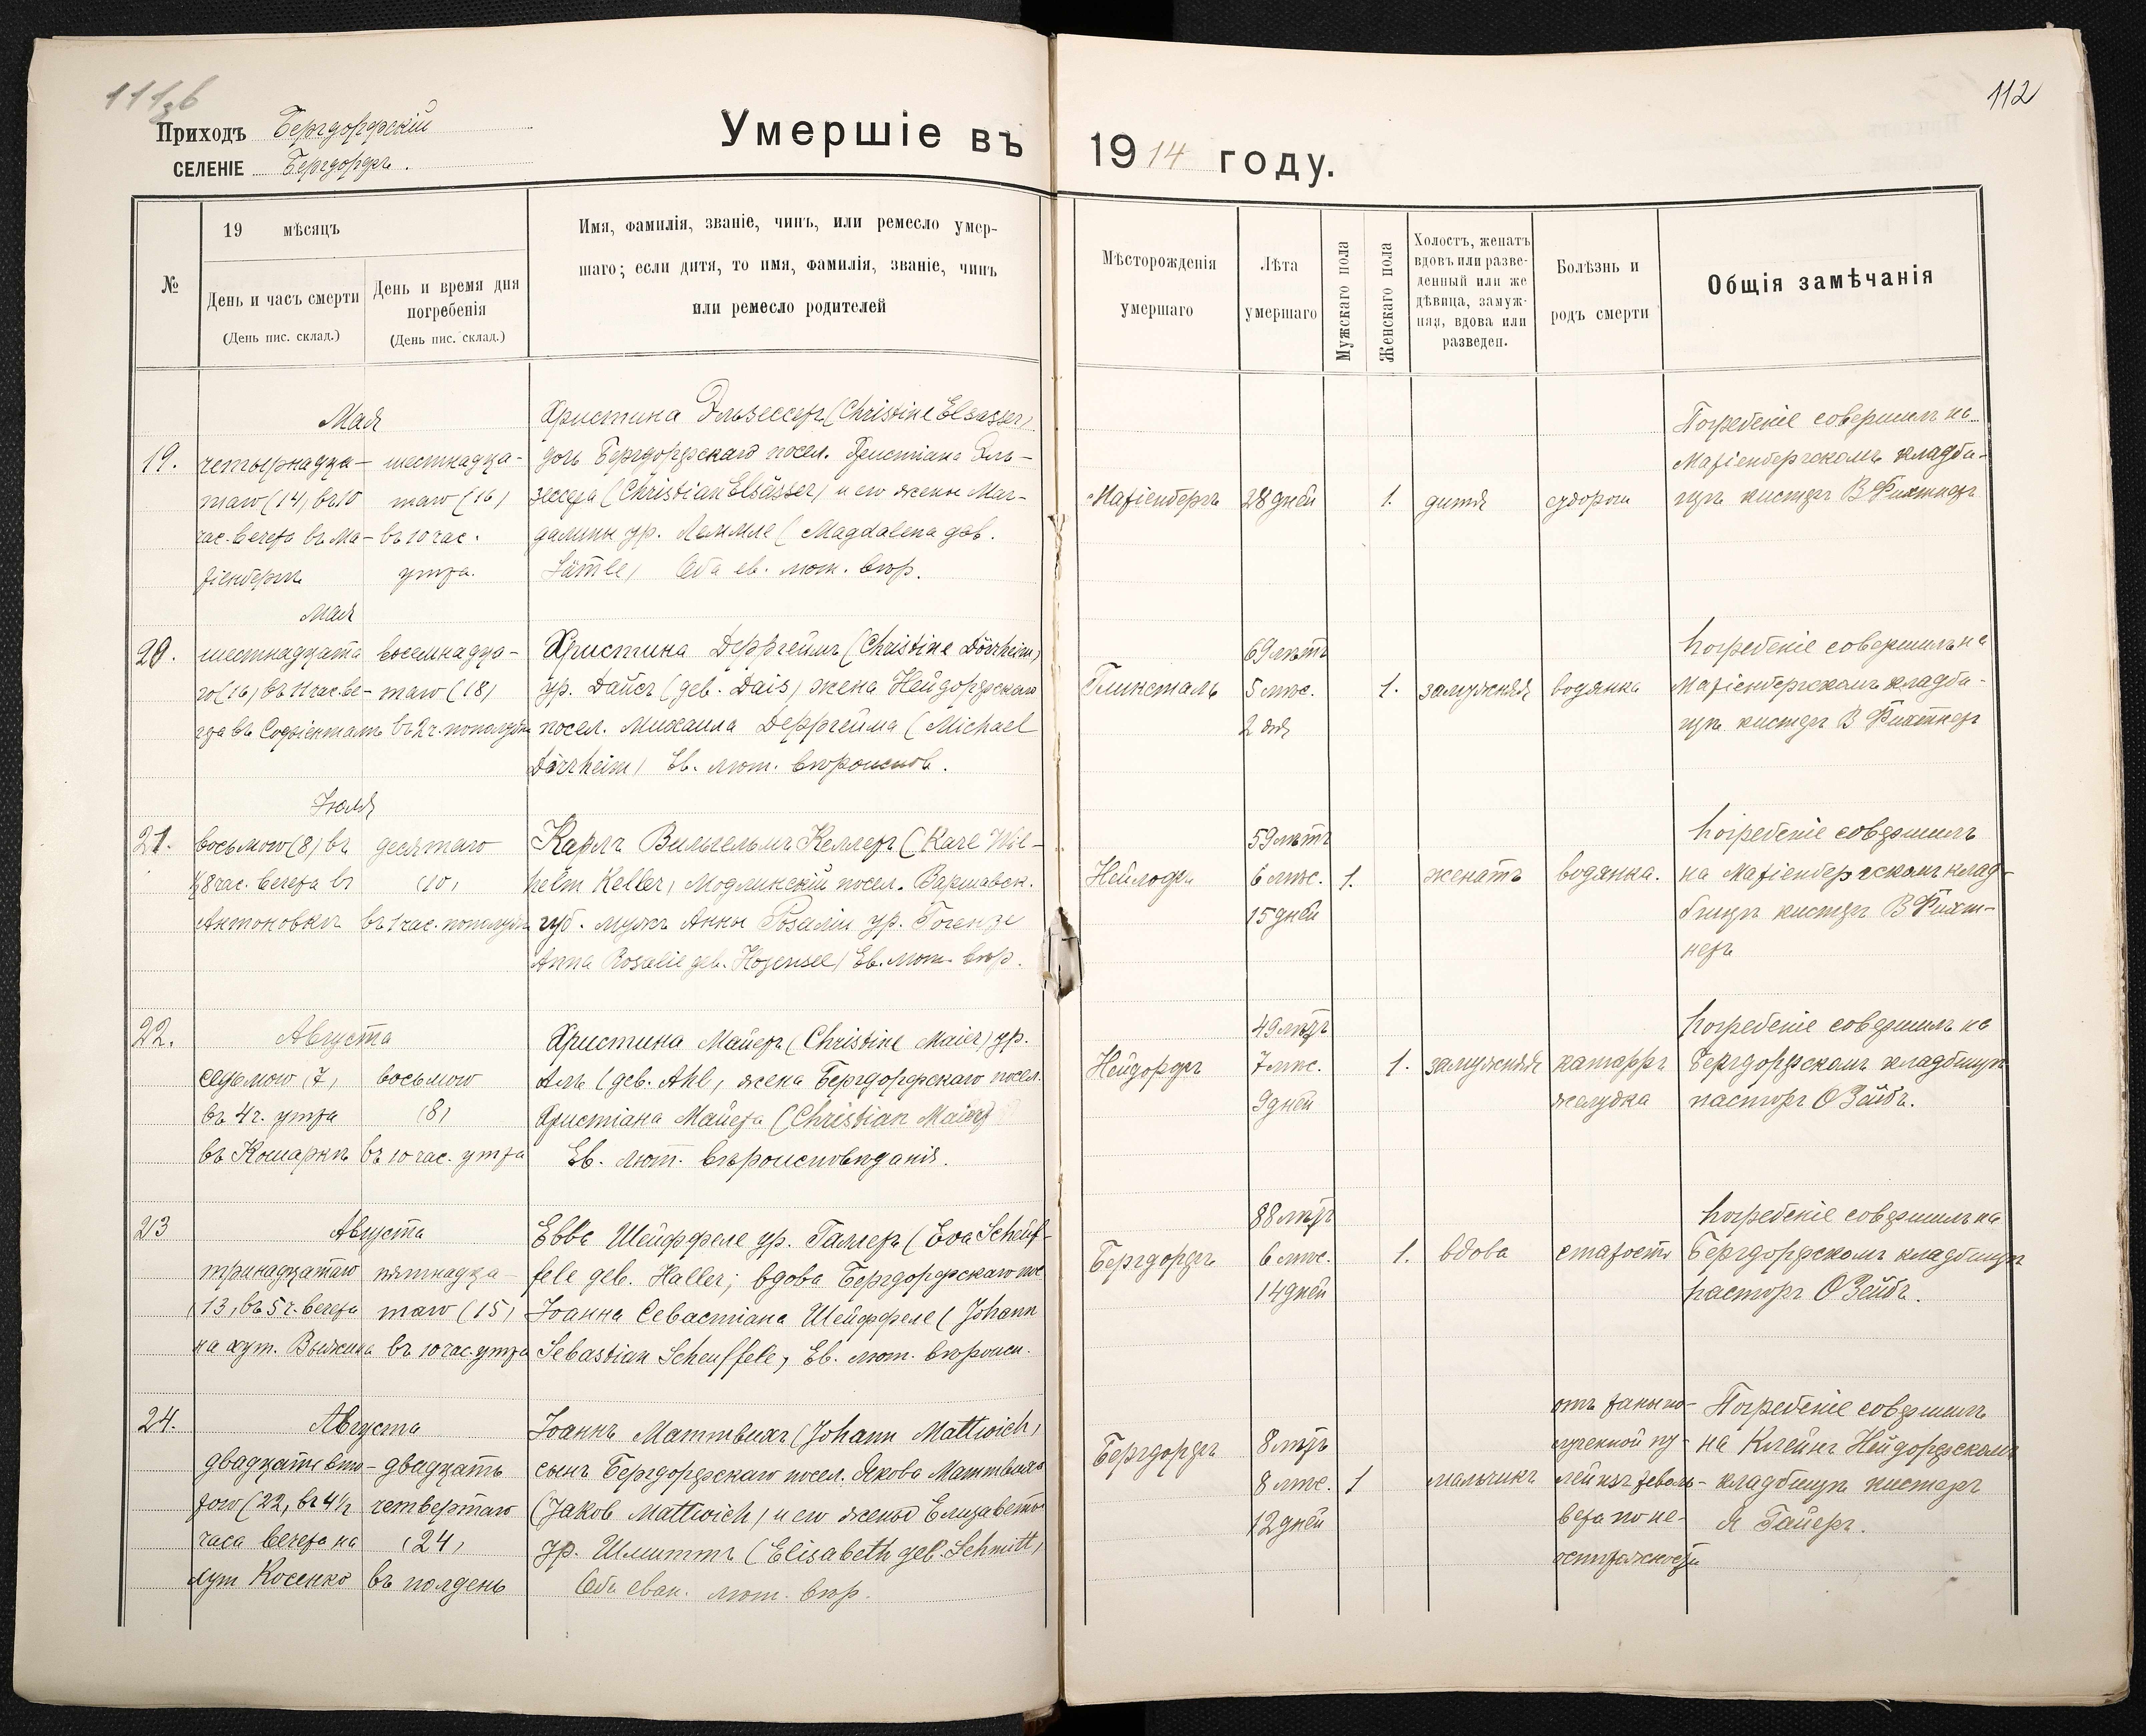 111
112
Приходъ Бергдорфскій
СЕЛЕНІЕ Бергдорфъ.
Умершіе въ 1914 году.
№
19 мѣсяцъ
День и часъ смерти
(День пис. склад.)
День и время дня
погребенія
(День пис. склад.)
Имя, фамилія, званіе, чинъ, или ремесло умер-
шаго; если дитя, то имя, фамилія, званіе, чинъ
или ремесло родителей
Мѣсторожденія
умершаго
Лѣта
умершаго
Мужскаго пола
Женскаго пола
Холостъ, женатъ
вдовъ или разве-
денный или же
дѣвица, замуж-
няя, вдова или
разведен.
Болѣзнь и
родъ смерти
Общія замѣчанія
19.
Мая
четырнадца-
таго (14) въ 10
час. вечера въ Ма-
ріенбергѣ
шестнадца-
таго (16)
въ 10 час.
утра.
Христина Эльзессеръ (Christine Elsässer)
дочь Бергдорфскаго посел. Христіана Эль-
зессера (Christian Elsässer) и его жены Маг-
далины ур. Леммле (Magdalena geb.
Lämle) Оба ев. лют. вѣр.
Маріенбергъ
28 дней
1.
дитя
судороги
Погребеніе совершилъ на
Маріенбергскомъ кладби-
щѣ кистеръ В Рихтнеръ
20.
Мая
шестнадцата
го (16) въ 11 час. ве-
чера въ Софіентали
восемнадца-
таго (18)
въ 2 ч. пополудни
Христина Дерргеймъ (Christine Dörrheim)
ур. Дайсъ (geb. Dais) жена Нейдорфскаго
посел. Михаила Дерргейма (Michael
Dörrheim) Ев. лют. вѣроиспов.
Глюксталь
69 лѣтъ
5 мѣс.
2 дня
1.
замужняя
водянка
Погребеніе совершилъ на
Маріенбергскомъ кладби-
щѣ кистеръ В Рихтнеръ
21.
Іюля
восьмого (8) въ
½8 час. вечера въ
Антоновкѣ
десятаго
(10)
въ 1 час. пополудни
Карлъ Вильгельмъ Келлеръ (Karl Wil-
helm Keller) Модлинскій посел. Варшавск.
губ. мужъ Анны Розаліи ур. Гогензе
Anna Rosalie geb. Hogensee) Ев. лют. вѣр.
59 лѣтъ
6 мѣс.
15 дней
1.
женатъ
водянка.
Погребеніе совершилъ
на Маріенбергскомъ клад-
бищѣ кистеръ В Рихт-
неръ
22.
Августа
седьмого (7)
въ 4 ч. утра
въ Кошаркѣ
восьмого
(8)
въ 10 час. утра
Христина Майеръ (Christine Maier) ур.
Аль (geb. Ahl) жена Бергдорфскаго посел.
Христіана Майера (Christian Maier)
Ев. лют. вѣроисповѣданія.
Нейдорфъ
49 лѣтъ
7 мѣс.
9 дней
1.
замужняя
катарръ
желудка
Погребеніе совершилъ на
Бергдорфскомъ кладбищѣ
пасторъ О Зейбъ.
23
Августа
тринадцатаго
(13) въ 5 ч. вечера
на хут.
пятнадца-
таго (15)
въ 10 час. утра
Евва Шейффеле ур. Галлеръ (Eva Scheuf-
fele geb. Haller; вдова Бергдорфскаго пос
Іоанна Севастіана Шейффеле (Johann
Sebastian Scheuffele, Ев. лют. вѣроисп.
Бергдорфъ
88 лѣтъ
6 мѣс.
14 дней
1.
вдова
старость
Погребеніе совершилъ на
Бергдорфскомъ кладбищѣ
пасторъ О Зейбъ.
24.
Августа
двадцать вто-
рого (22) въ 4½
часа вечера на
хут Косенко
двадцать
четвертаго
(24)
въ полдень
Іоаннъ Маттвихъ (Johann Mattwich)
сынъ Бергдорфскаго посел. Якова Маттвиха
(Jakob Mattwich) и его жены Елизаветы
ур. Шмиттъ (Elisabeth geb. Schmitt)
Оба еван. лют. вѣр.
Бергдорфъ
8 лѣтъ
8 мѣс.
12 дней
1
мальчикъ
отъ раны по-
лученной пу-
лей изъ револь-
вера по не-
осторожности
Погребеніе совершилъ
на Клейнъ Нейдорфскомъ
кладбищѣ кистеръ
Я Гайеръ.